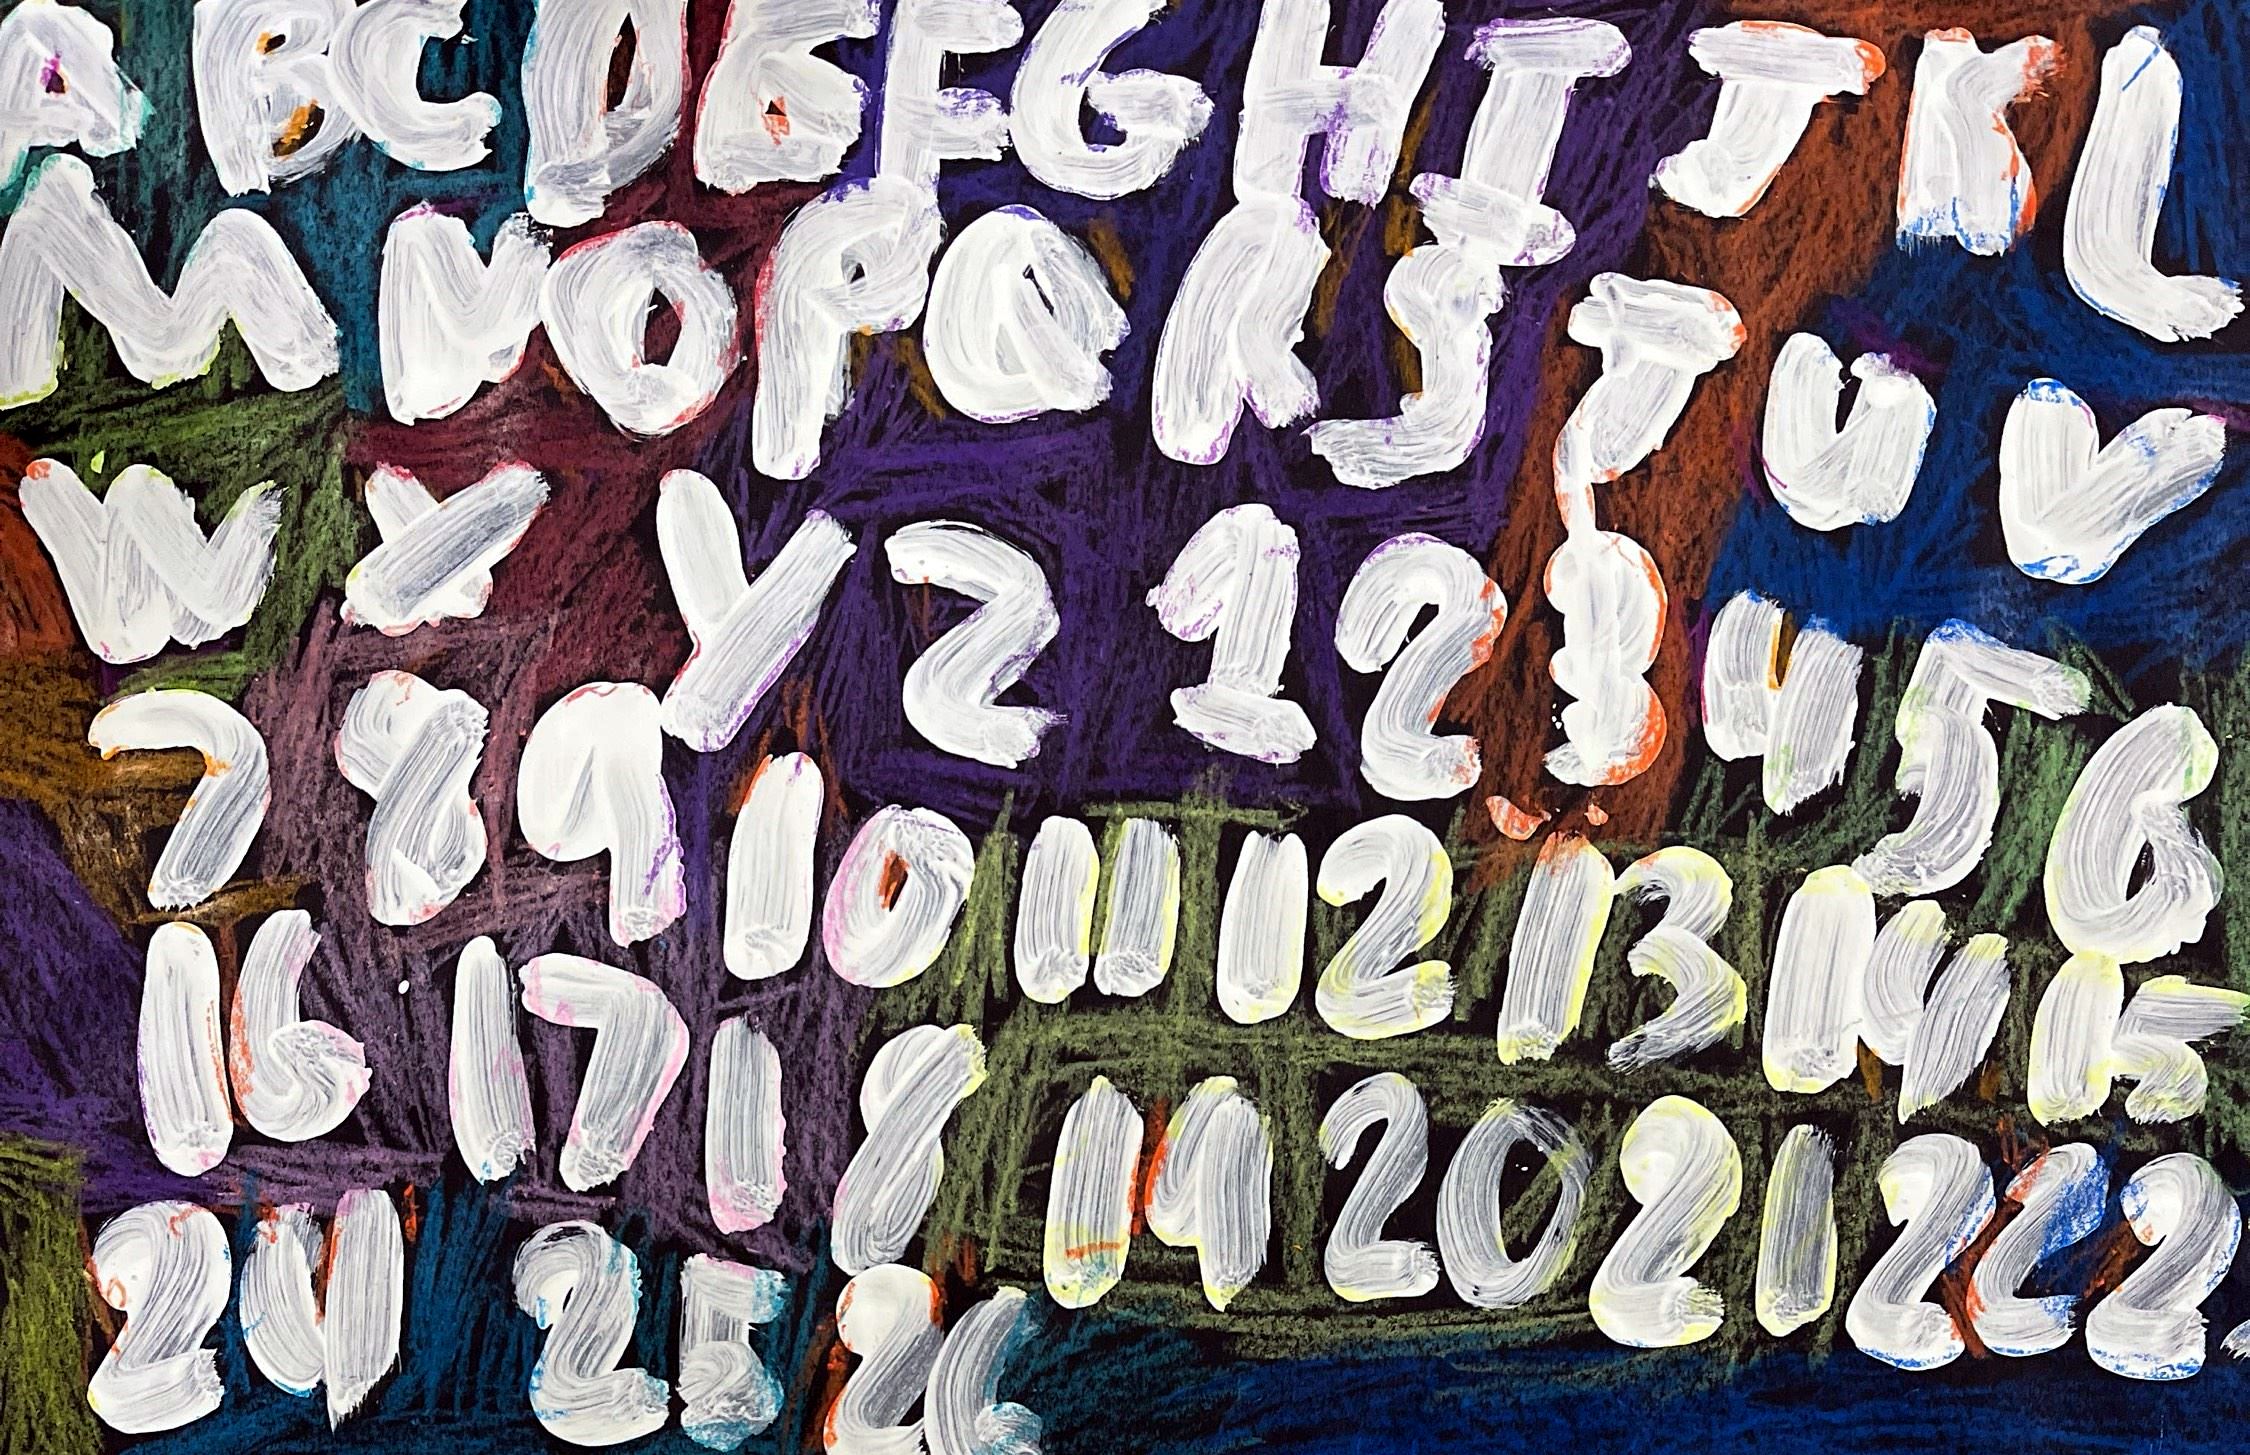 A B C D E F G H I J K L
M N O P Q R S T U V
W X Y Z 1 2 3 4 5 6
7 8 9 10 11 12 13 14 15
16 17 18 19 20 21 22 2
24 25 26